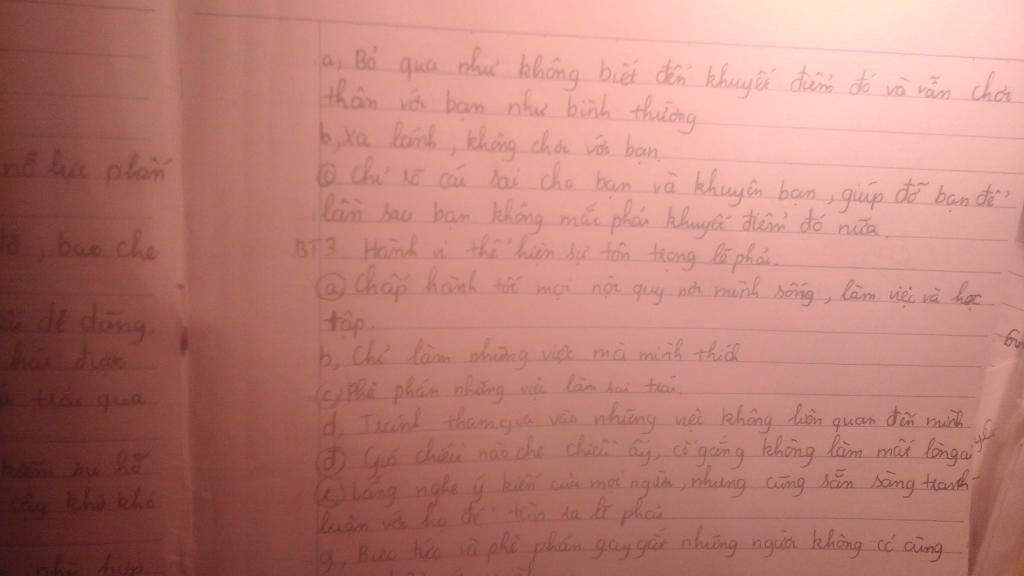 a, Bỏ qua như không biết đến khuyết điểm đó và vẫn chơi
thân với bạn như bình thường
b, Xa lánh, không chơi với bạn
c Chỉ rõ cái sai cho bạn và khuyên bạn, giúp đỡ bạn để
lần sau bạn không mắc phải khuyết điểm đó nữa.
BT3 Hành vi thể hiện sự tôn trọng lẽ phải.
a Chấp hành tốt mọi nội quy nơi mình sống, làm việc và học
tập.
b, Chỉ làm những việc mà mình thích
c, Phê phán những việc làm sai trái
d, Tránh tham gia vào những việc không liên quan đến mình
đ Gió chiều nào che chiều ấy, cố gắng không làm mất lòng ai
e Lắng nghe ý kiến của mọi người, nhưng cũng sẵn sàng tranh
luận với họ để tìm ra lẽ phải
g, Bực tức và phê phán gay gắt những người không có cùng
nỗ lực phấn
, bao che
dễ dàng.
hái được
trái qua
cây khô
phù hợp